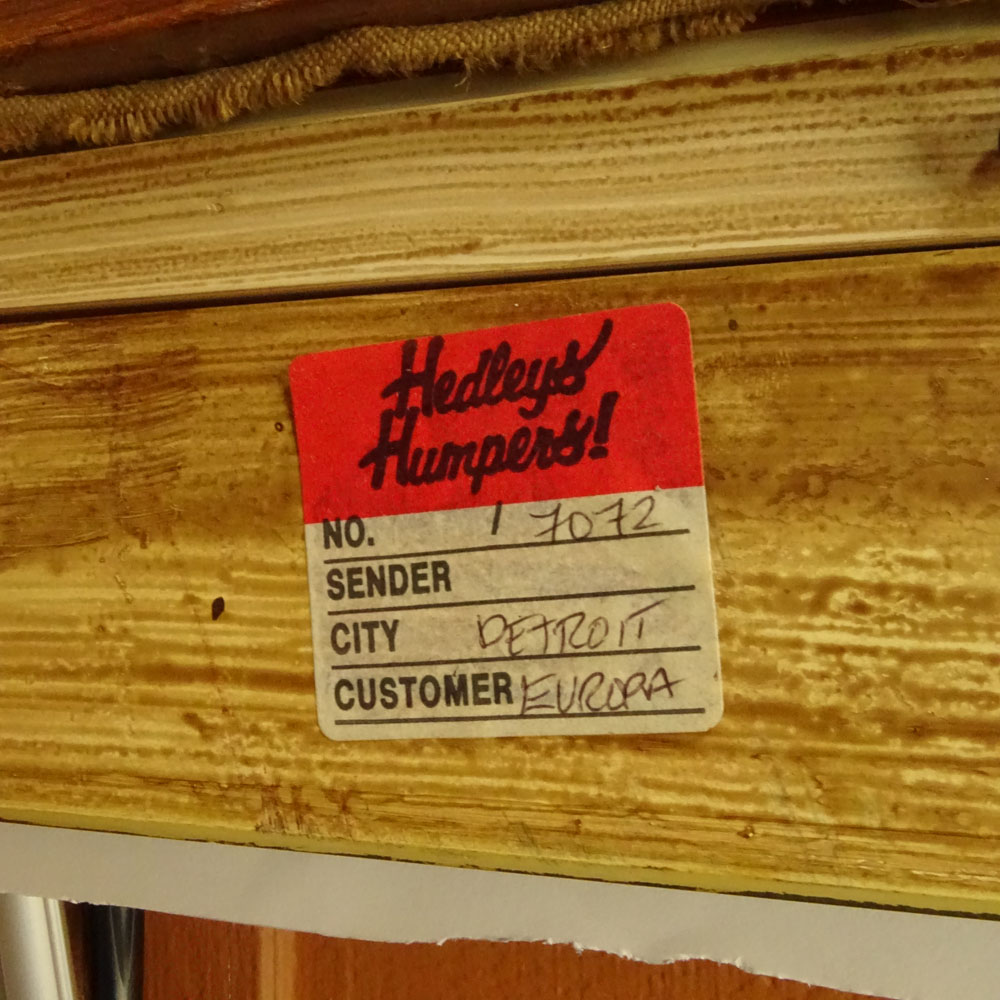 Hedleys'
Humpers!
NO. 17072
SENDER
CITY DETROIT
CUSTOMER EUROPA